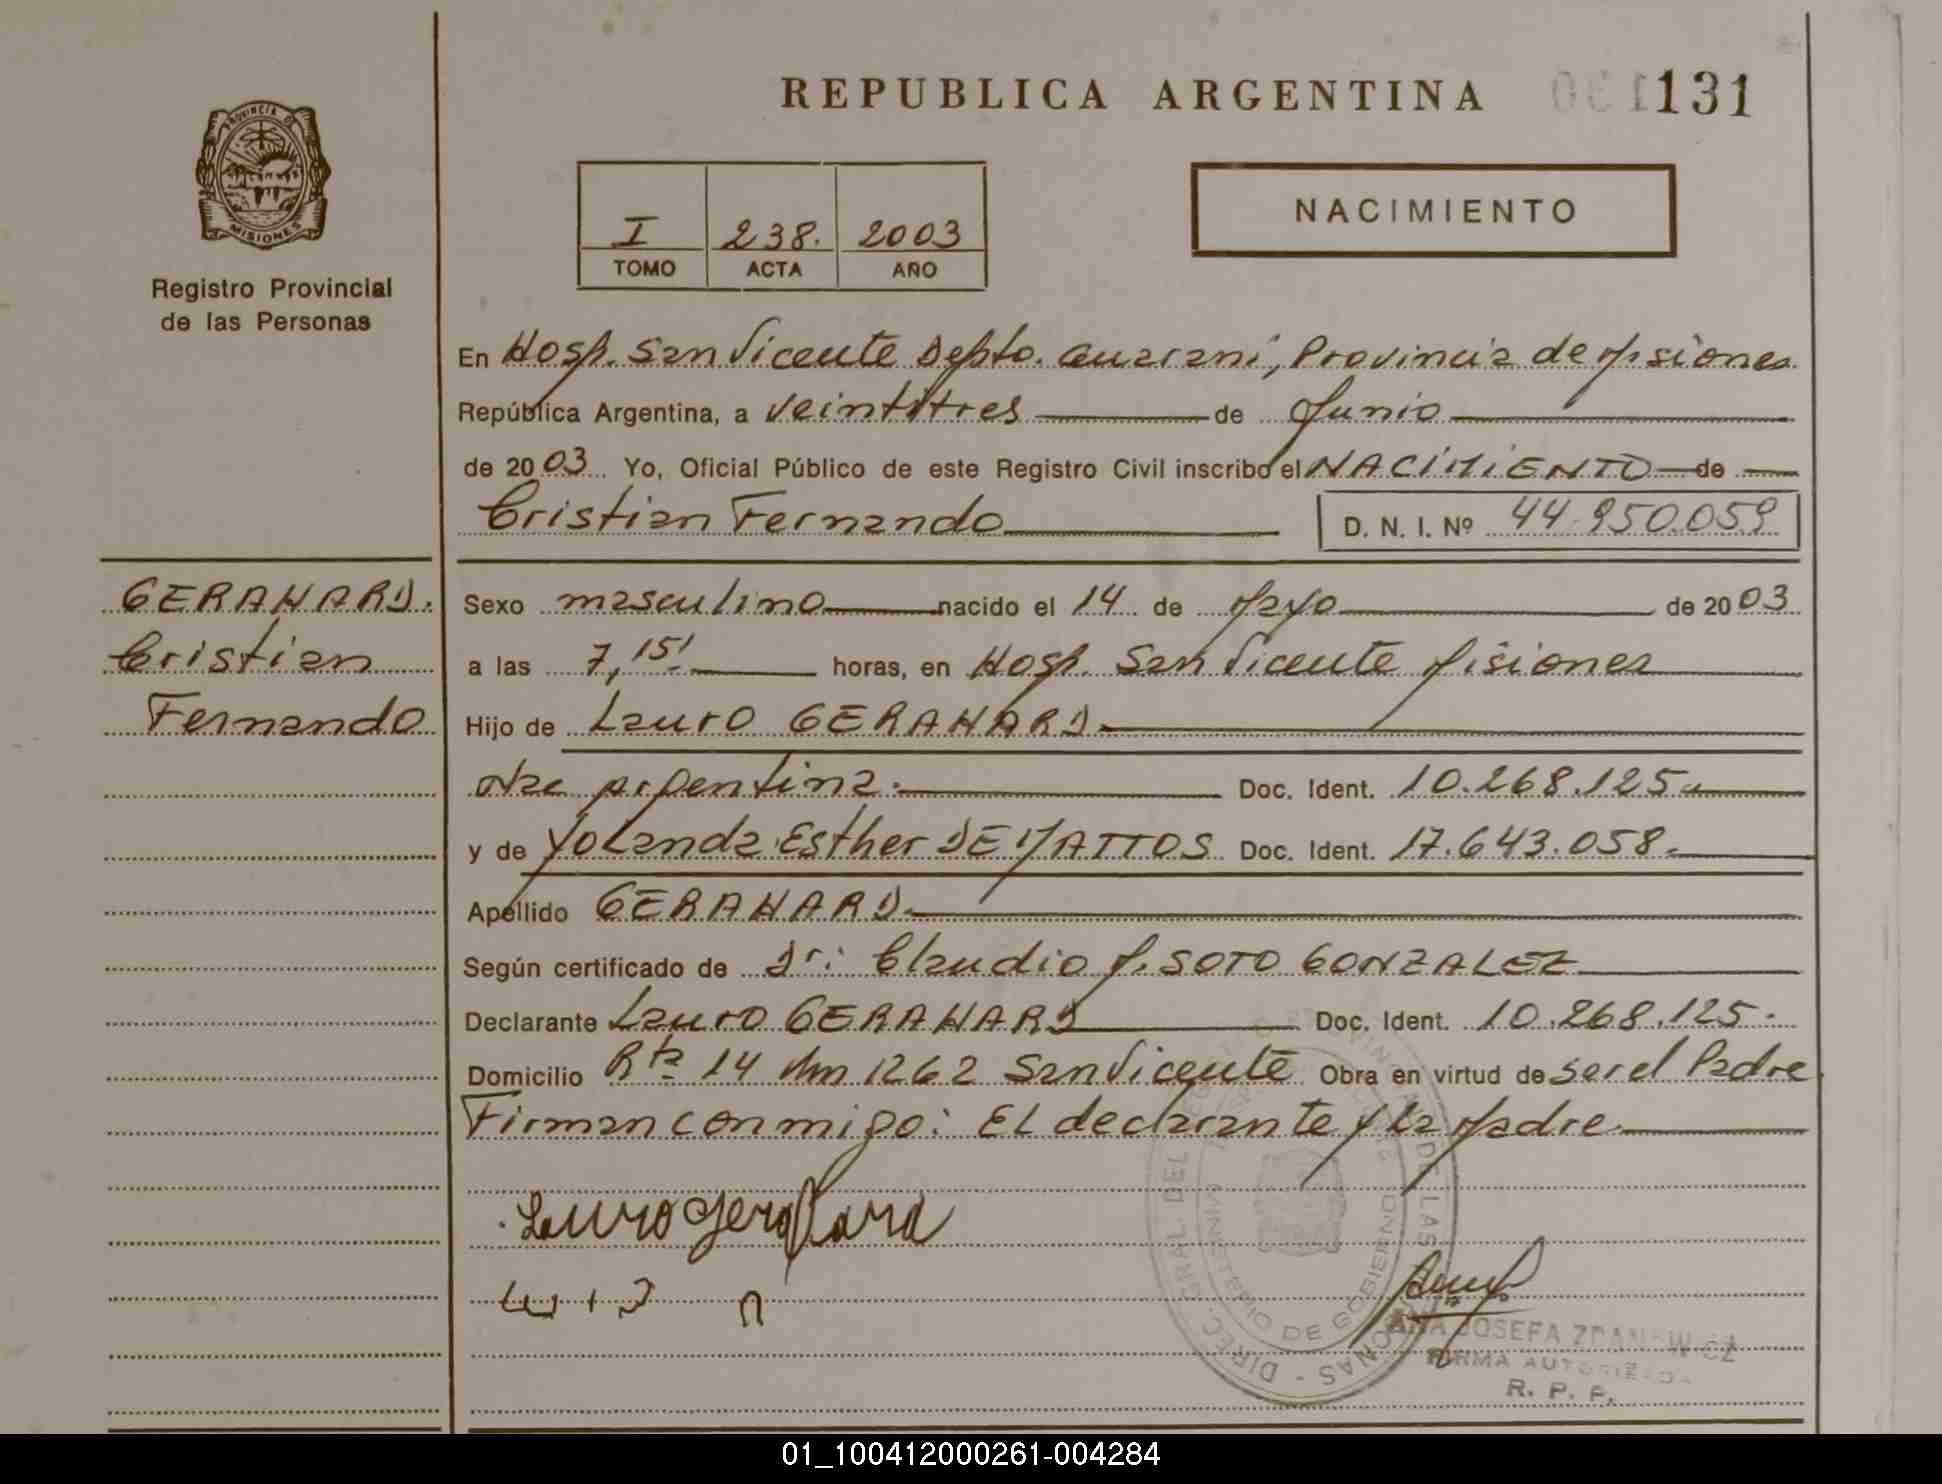 REPUBLICA ARGENTINA 131
PROVINCIA DE
MISIONES
Registro Provincial
de las Personas
I 238. 2003
TOMO ACTA AÑO
NACIMIENTO
En Hosp. San Vicente Depto. Guarani, Provincia de Misiones
República Argentina, a veintitres de Junio
de 2003 Yo, Oficial Público de este Registro Civil inscribo el NACIMIENTO de
Cristian Fernando D. N. I. Nº 44.950.059
GERAHARD.
Cristian
Fernando
Sexo masculino nacido el 14 de Mayo de 2003
a las 7,15' horas, en Hosp. San Vicente Misiones
Hijo de Lauro GERAHARD
Nac Argentina. Doc. Ident. 10.268.125
y de Yolanda Esther DE MATTOS Doc. Ident. 17.643.058.
Apellido GERAHARD.
Según certificado de Dr: Claudio J. SOTO GONZALEZ
Declarante Lauro GERAHARD Doc. Ident. 10.268.125.
Domicilio Rta 14 Km 1262 San Vicente Obra en virtud de ser el Padre
Firman conmigo: El declarante y la Madre
Lauro Gerahard
DIREC. GRAL. DEL REGISTRO PROVINCIAL DE LAS PERSONAS
MINISTERIO DE GOBIERNO
ANA JOSEFA
FIRMA AUTORIZADA
R. P. P.
01_100412000261-004284